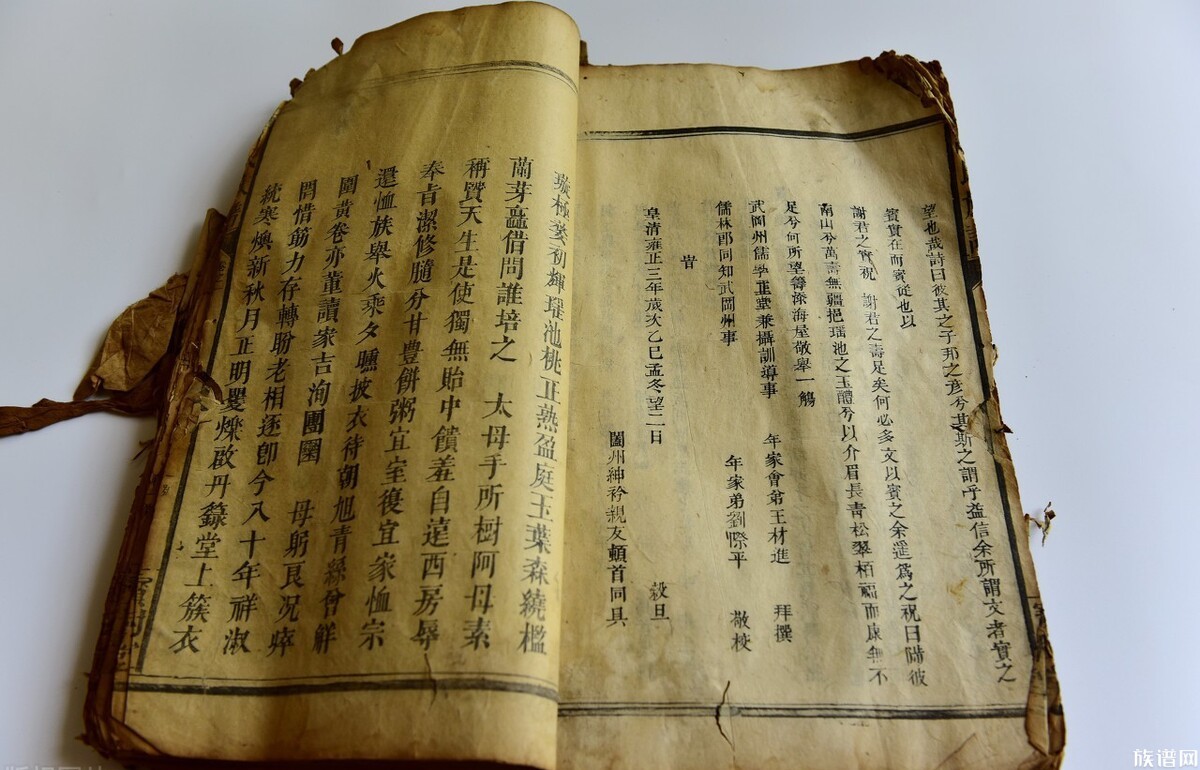 望也哉詩曰彼其之子邦之彥兮其斯之謂乎益信余所謂文者實之
賓實在而賓從也以
謝君之實祝 謝君之壽足矣何必多文以賓之余遂為之祝曰瞻彼
南山兮萬壽無疆挹瑶池之玉醴兮以介眉長青松翠栢福而康無不
足兮何所望籌添海屋敬舉一觴
武岡州儒學正堂兼攝訓導事 年家會弟王材進 拜撰
儒林郎同知武岡州事 年家弟劉際平 敬校
旹
皇清雍正三年歲次乙巳孟冬望二日 榖旦
闔州紳衿親友頓首同具
璇極婺初輝瑤池桃正熟盈庭玉葉森繞檻
蘭芽矗借問誰培之 太母手所樹阿母素
稱賢天生是使獨無貽中饋羞自遠西房辱
奉旨潔修隨分甘豊餠粥宜室復宜家恤宗
還恤族舉火乘夕曛披衣待朝旭青綠曾
圍黃卷亦董讀家吉洵團圞 母躬艮况瘁
問借筋力存轉盼老相逐卽今八十年祥淑
統寒燠新秋月正明璺爍啟丹籙堂上簇衣
族谱网